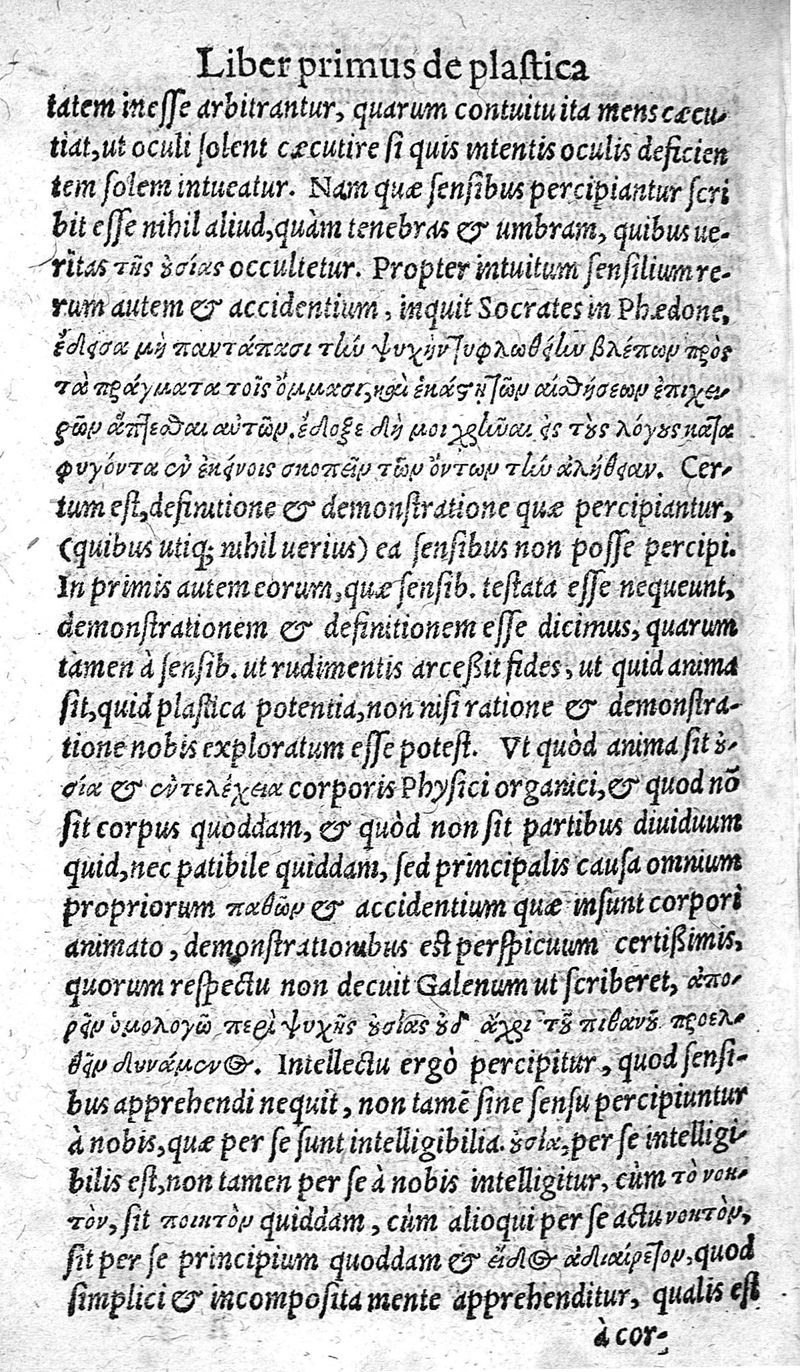 Liber primus de plastica
tatem inesse arbitrantur, quarum contuitu ita mens cæcu-
tiat, ut oculi solent cæcutire si quis intentis oculis deficien
tem solem intueatur. Nam quæ sensibus percipiantur scri
bit esse nihil aliud, quàm tenebras & umbram, quibus ue-
ritas τῆς ȣσίας occultetur. Propter intuitum sensilium re-
rum autem & accidentium, inquit Socrates in Phædone,
ἔδεισα μὴ παντάπασι τὴν ψυχὴν τυφλωθείην βλέπων πρὸς
τὰ πράγματα τοῖς ὄμμασι, καὶ ἑκάστῃ τῶν αἰσθήσεων ἐπιχει-
ρῶν ἅπτεσθαι αὐτῶν. ἔδοξε δή μοι χρῆναι εἰς τȣ̀ς λόγȣς κατα
φυγόντα ἐν ἐκείνοις σκοπεῖν τῶν ὄντων τὴν ἀλήθειαν. Cer-
tum est, definitione & demonstratione quæ percipiantur,
(quibus utiq; nihil uerius) ea sensibus non posse percipi.
In primis autem eorum, quæ sensib. testata esse nequeunt,
demonstrationem & definitionem esse dicimus, quarum
tamen à sensib. ut rudimentis arceßit fides, ut quid anima
sit, quid plastica potentia, non nisi ratione & demonstra-
tione nobis exploratum esse potest. Vt quòd anima sit ȣ̓-
σία & ἐντελέχεια corporis Physici organici, & quod nō
sit corpus quoddam, & quòd non sit partibus diuiduum
quid, nec patibile quiddam, sed principalis causa omnium
propriorum παθῶν & accidentium quæ insunt corpori
animato, demonstrationibus est perspicuum certißimis,
quorum respectu non decuit Galenum ut scriberet, ἀπο-
ρεῖν ὁμολογῶ περὶ ψυχῆς ȣσίας ȣδ' ἄχρι τȣ̃ πιθανȣ̃ προελ-
θεῖν δυνάμενος. Intellectu ergò percipitur, quod sensi-
bus apprehendi nequit, non tamē sine sensu percipiuntur
à nobis, quæ per se sunt intelligibilia. ȣσία, per se intelligi-
bilis est, non tamen per se à nobis intelligitur, cùm τὸ νοη-
τὸν, sit ποιητὸν quiddam, cùm alioqui per se actu νοητὸν,
sit per se principium quoddam & εἶδος ἀδιαίρετον, quod
simplici & incomposita mente apprehenditur, qualis est
à cor-